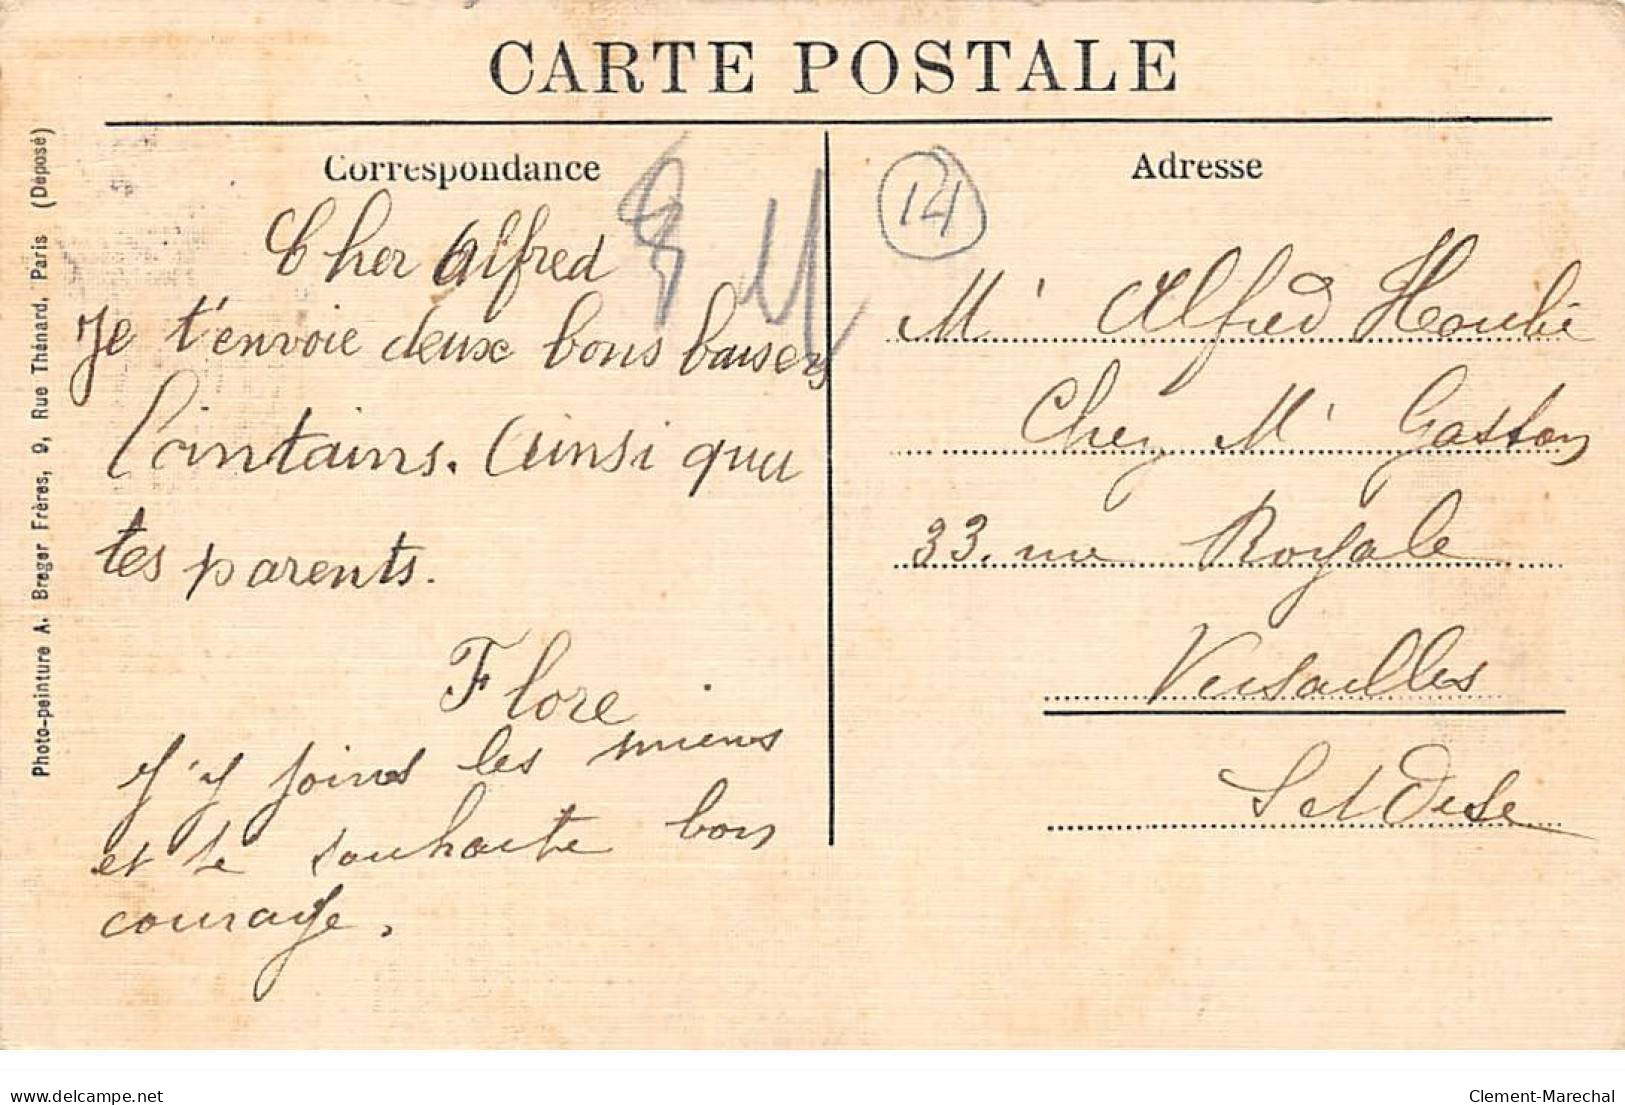 CARTE POSTALE
Correspondance
Cher Alfred
Je t'envoie deux bons baisers
lointains. Ainsi qua
tes parents.
Flore
J'y joins les miens
et te souhaite bon
courage.
14
Adresse
Mr Alfred
Chez Mr Gaston
33. rue Royale
Versailles
S et Oise
Photo-peinture A. Breger Frères, 9, Rue Thénard, Paris (Déposé)
delcampe.net
Clement-Marechal